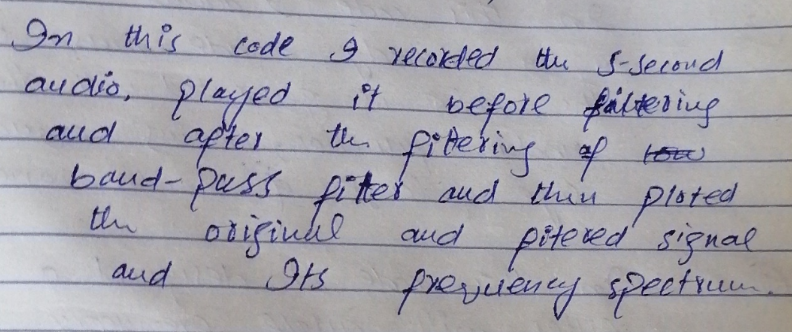 In this code I recorded the 5-second
audio, played it before filtering
and after the fitering of
band-pass fitter and then ploted
the original and fitered signal
and Its frequency spectrum.